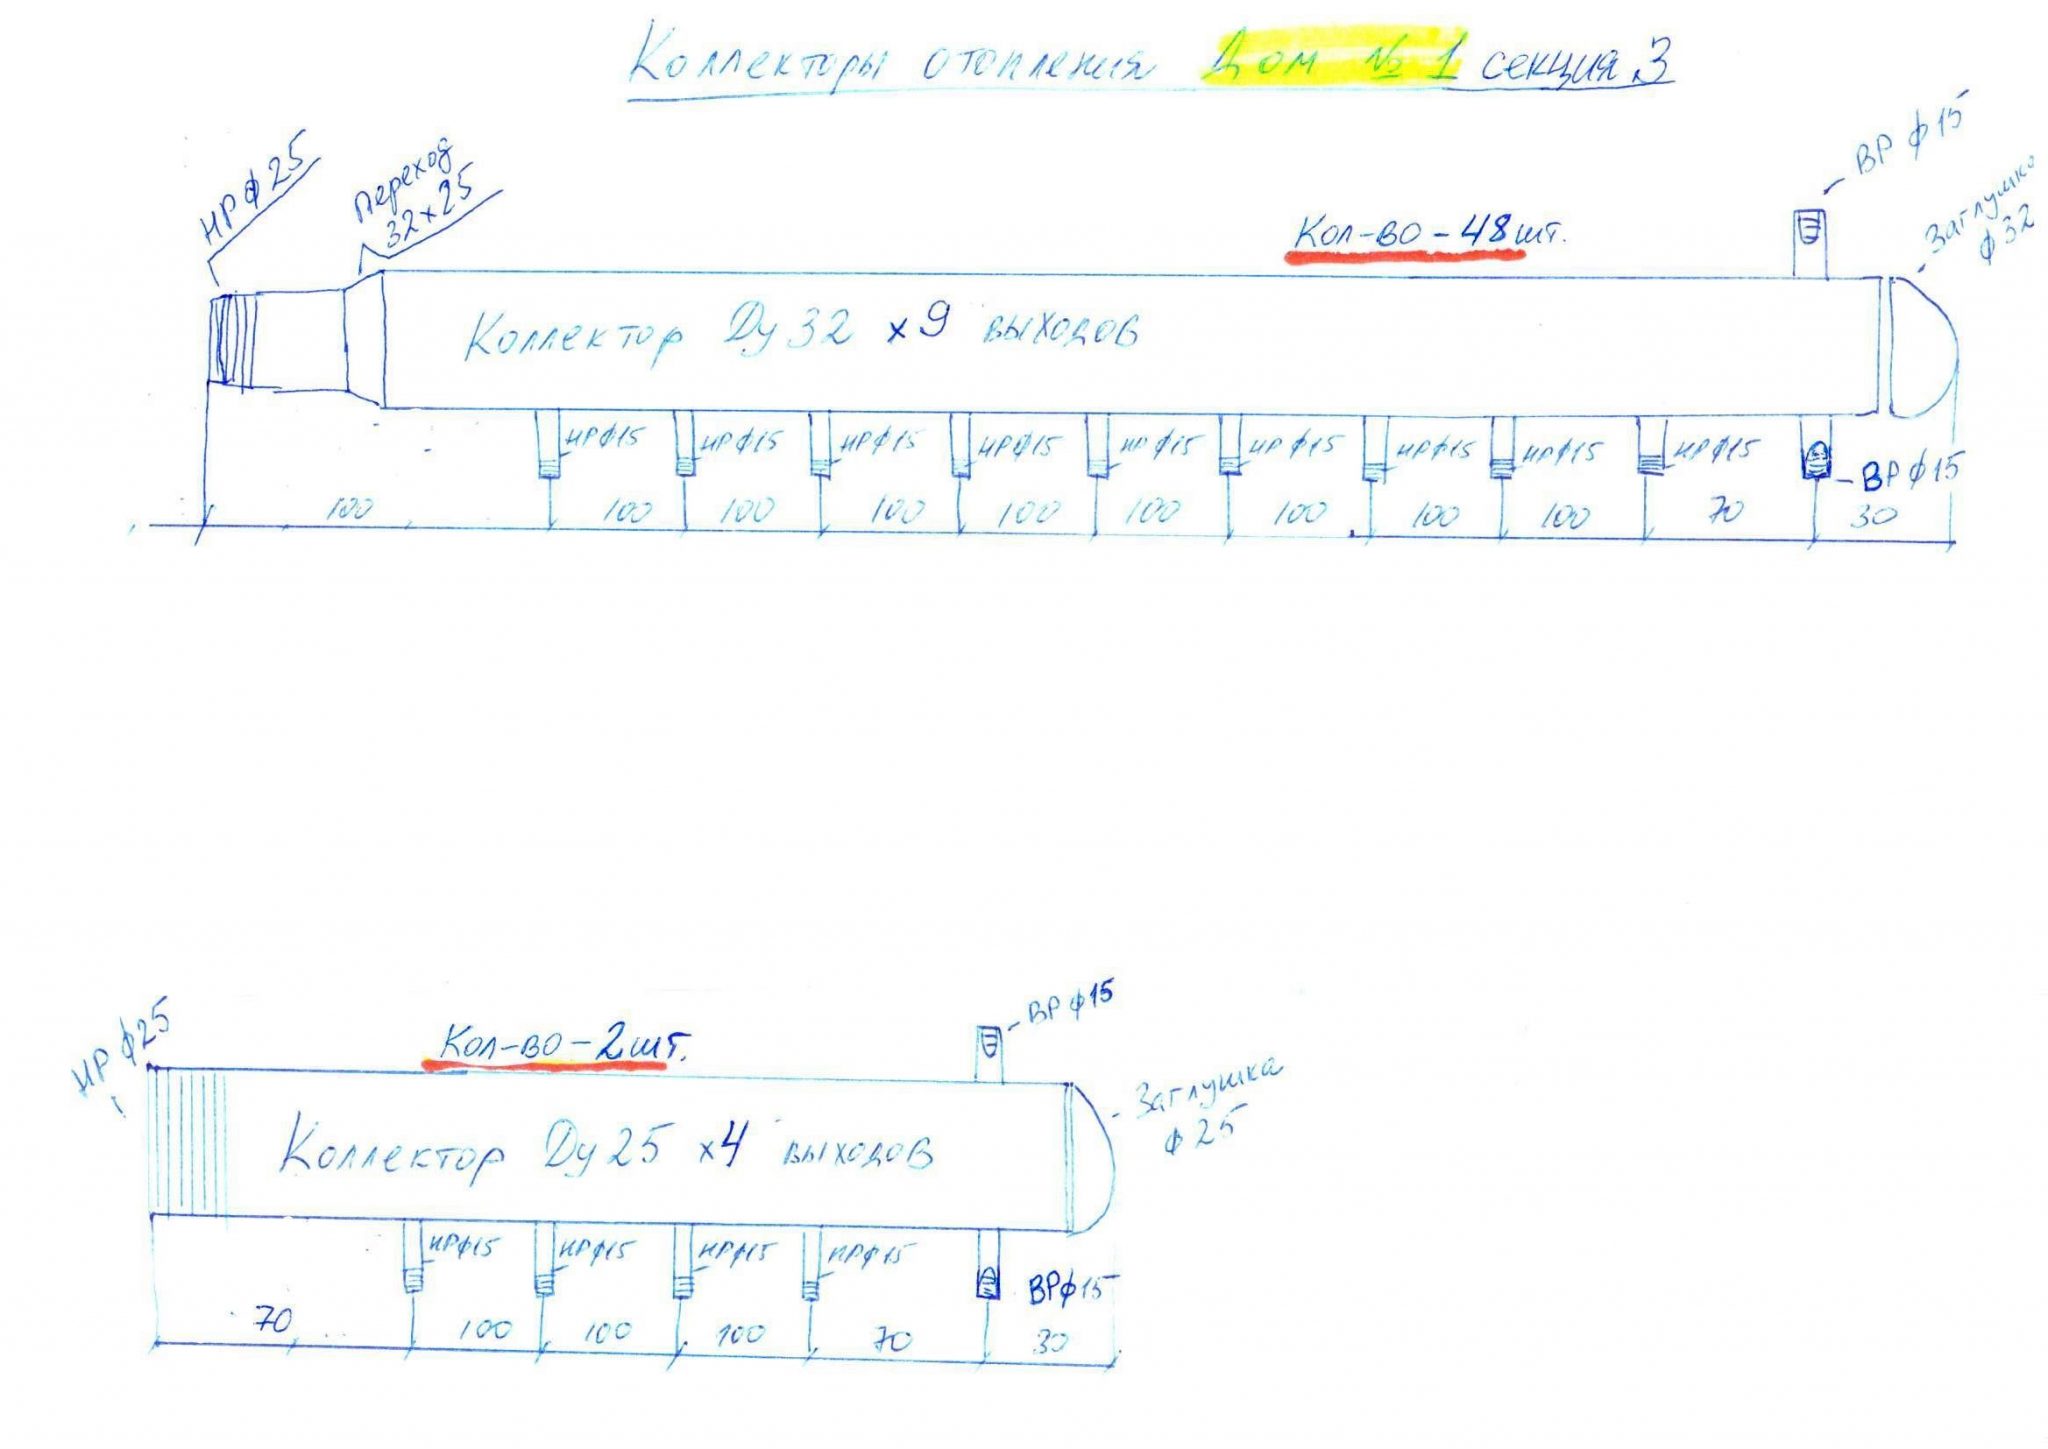 Коллекторы отопления Дом № 1 секция 3
НР ф 25
Переход
32×25
ВР ф 15
Заглушка
ф 32
Кол-во - 48 шт.
Коллектор Ду 32 × 9 выходов
НРф15 НРф15 НРф15 НРф15 НРф15 НРф15 НРф15 НРф15 НРф15 ВРф15
100 100 100 100 100 100 100 100 100 70 30
НР ф25
Кол-во - 2 шт.
ВР ф15
Заглушка
ф 25
Коллектор Ду 25 ×4 выходов
НРф15 НРф15 НРф15 НРф15 ВРф15
70 100 100 100 70 30